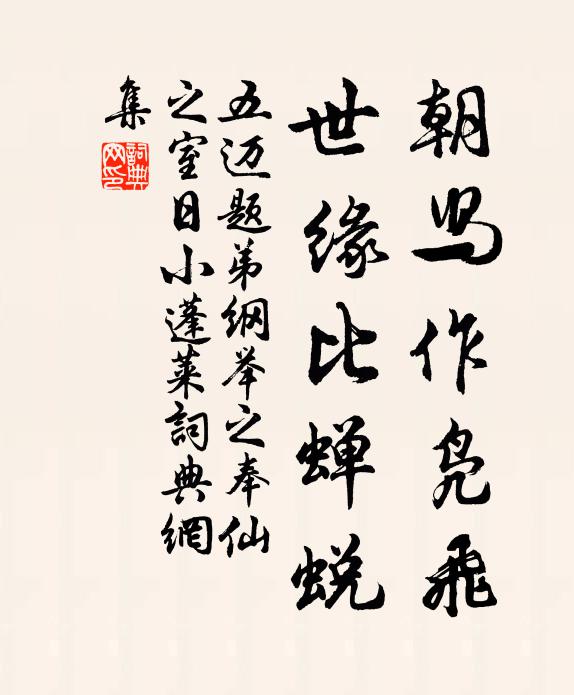 朝舄作凫飛
世缘比蝉蜕
五迈题弟纲举之奉仙
之室日小蓬莱詞典網
集
詞典
网印